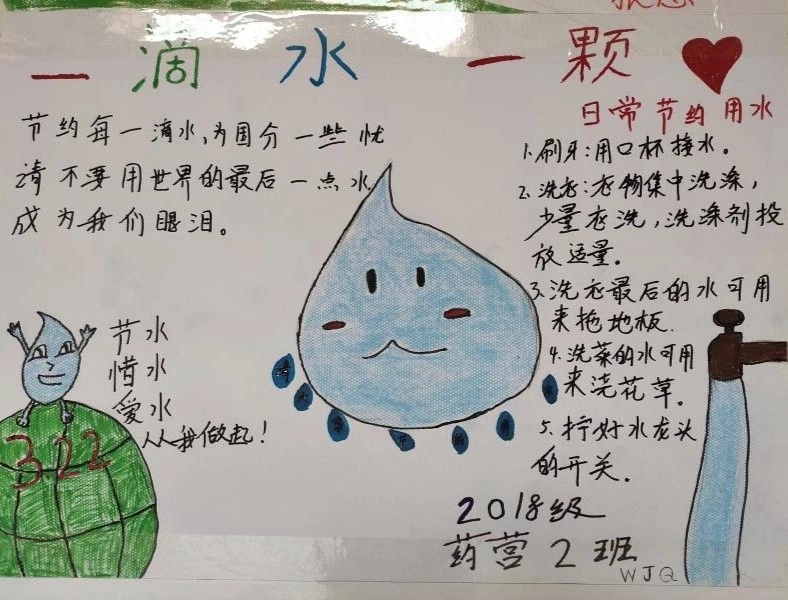 一滴水 一颗
节约每一滴水,为国分一些忧
请不要用世界的最后一点水
成为我们眼泪。
日常节约用水
1.刷牙:用口杯接水。
2.洗衣:衣物集中洗涤,
少量衣洗,洗涤剂投
放适量。
3.洗衣最后的水可用
来拖地板.
4.洗菜的水可用
来浇花草。
5.拧好水龙头
的开关.
节水
惜水
爱水
从我做起!
322
2018级
药营2班
WJQ